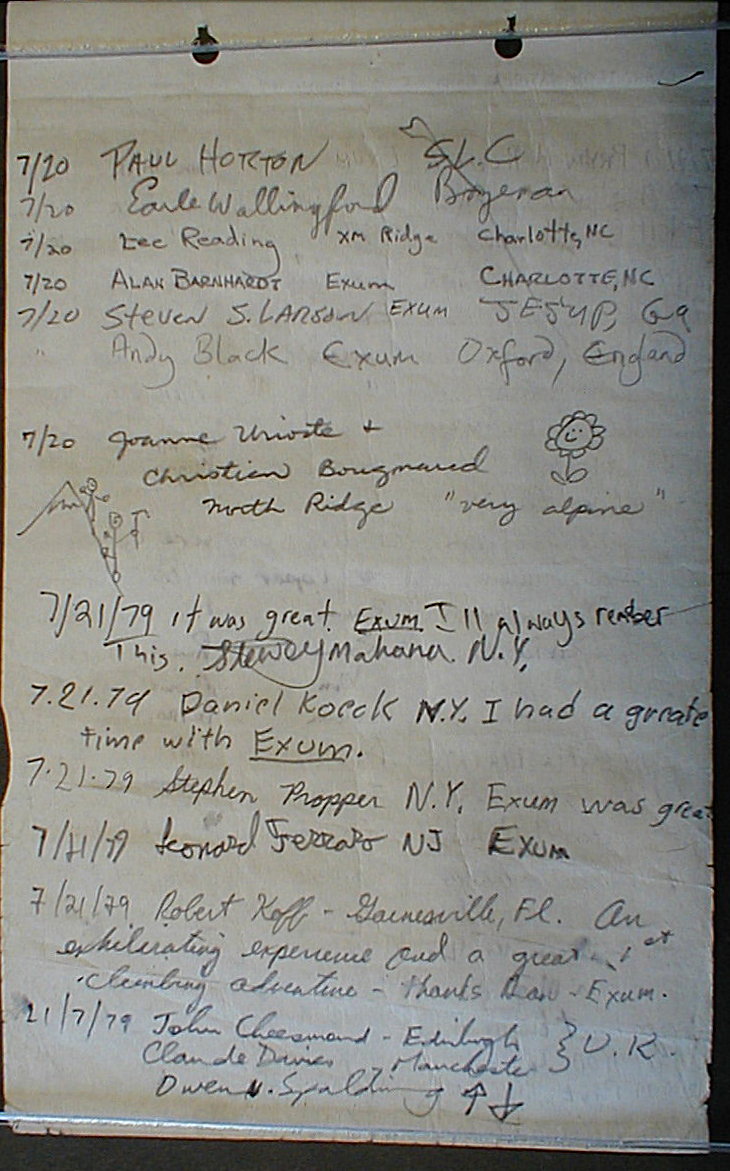 7/20 PAUL HORTON SLC
7/20 Earle Wallingford Bozeman
7/20 Lee Reading XM Ridge Charlotte, NC
7/20 ALAN BARNHARDT EXUM CHARLOTTE, NC
7/20 Steven S. LARSON EXUM JESUP, Ga
" Andy Black Exum Oxford, England
7/20 Joanne Urioste +
Christian
North Ridge "very alpine"
7/21/79 it was great. Exum I'll always rember
This. Stewey Mahana. N.Y.
7.21.79 Daniel Koeck N.Y. I had a greate
time with Exum.
7.21.79 Stephen Propper N.Y. Exum was great
7/21/79 Leonard Ferraro NJ EXUM
7/21/79 Robert Koff - Gainesville, Fl. An
exhilirating experience and a great 1st
climbing adventure - thanks Dan - Exum.
21/7/79 John Cheesmond - Edinburgh } U.K.
Claude Davies Manchester
Owen. Spalding ↑↓